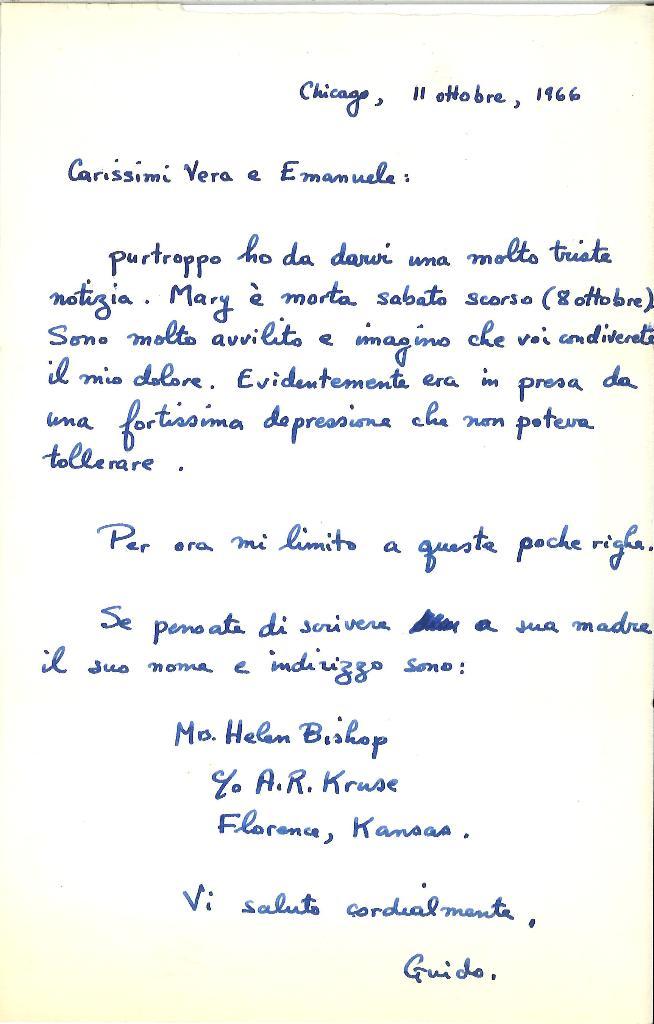 Chicago, 11 ottobre, 1966
Carissimi Vera e Emanuele:
purtroppo ho da darvi una molto triste
notizia. Mary è morta sabato scorso (8 ottobre)
Sono molto avvilito e imagino che voi condiverete
il mio dolore. Evidentemente era in presa da
una fortissima depressione che non poteva
tollerare.
Per ora mi limito a queste poche righe.
Se pensate di scrivere a sua madre
il suo nome e indirizzo sono:
Mrs. Helen Bishop
c/o A.R. Kruse
Florence, Kansas.
Vi saluto cordialmente,
Guido.